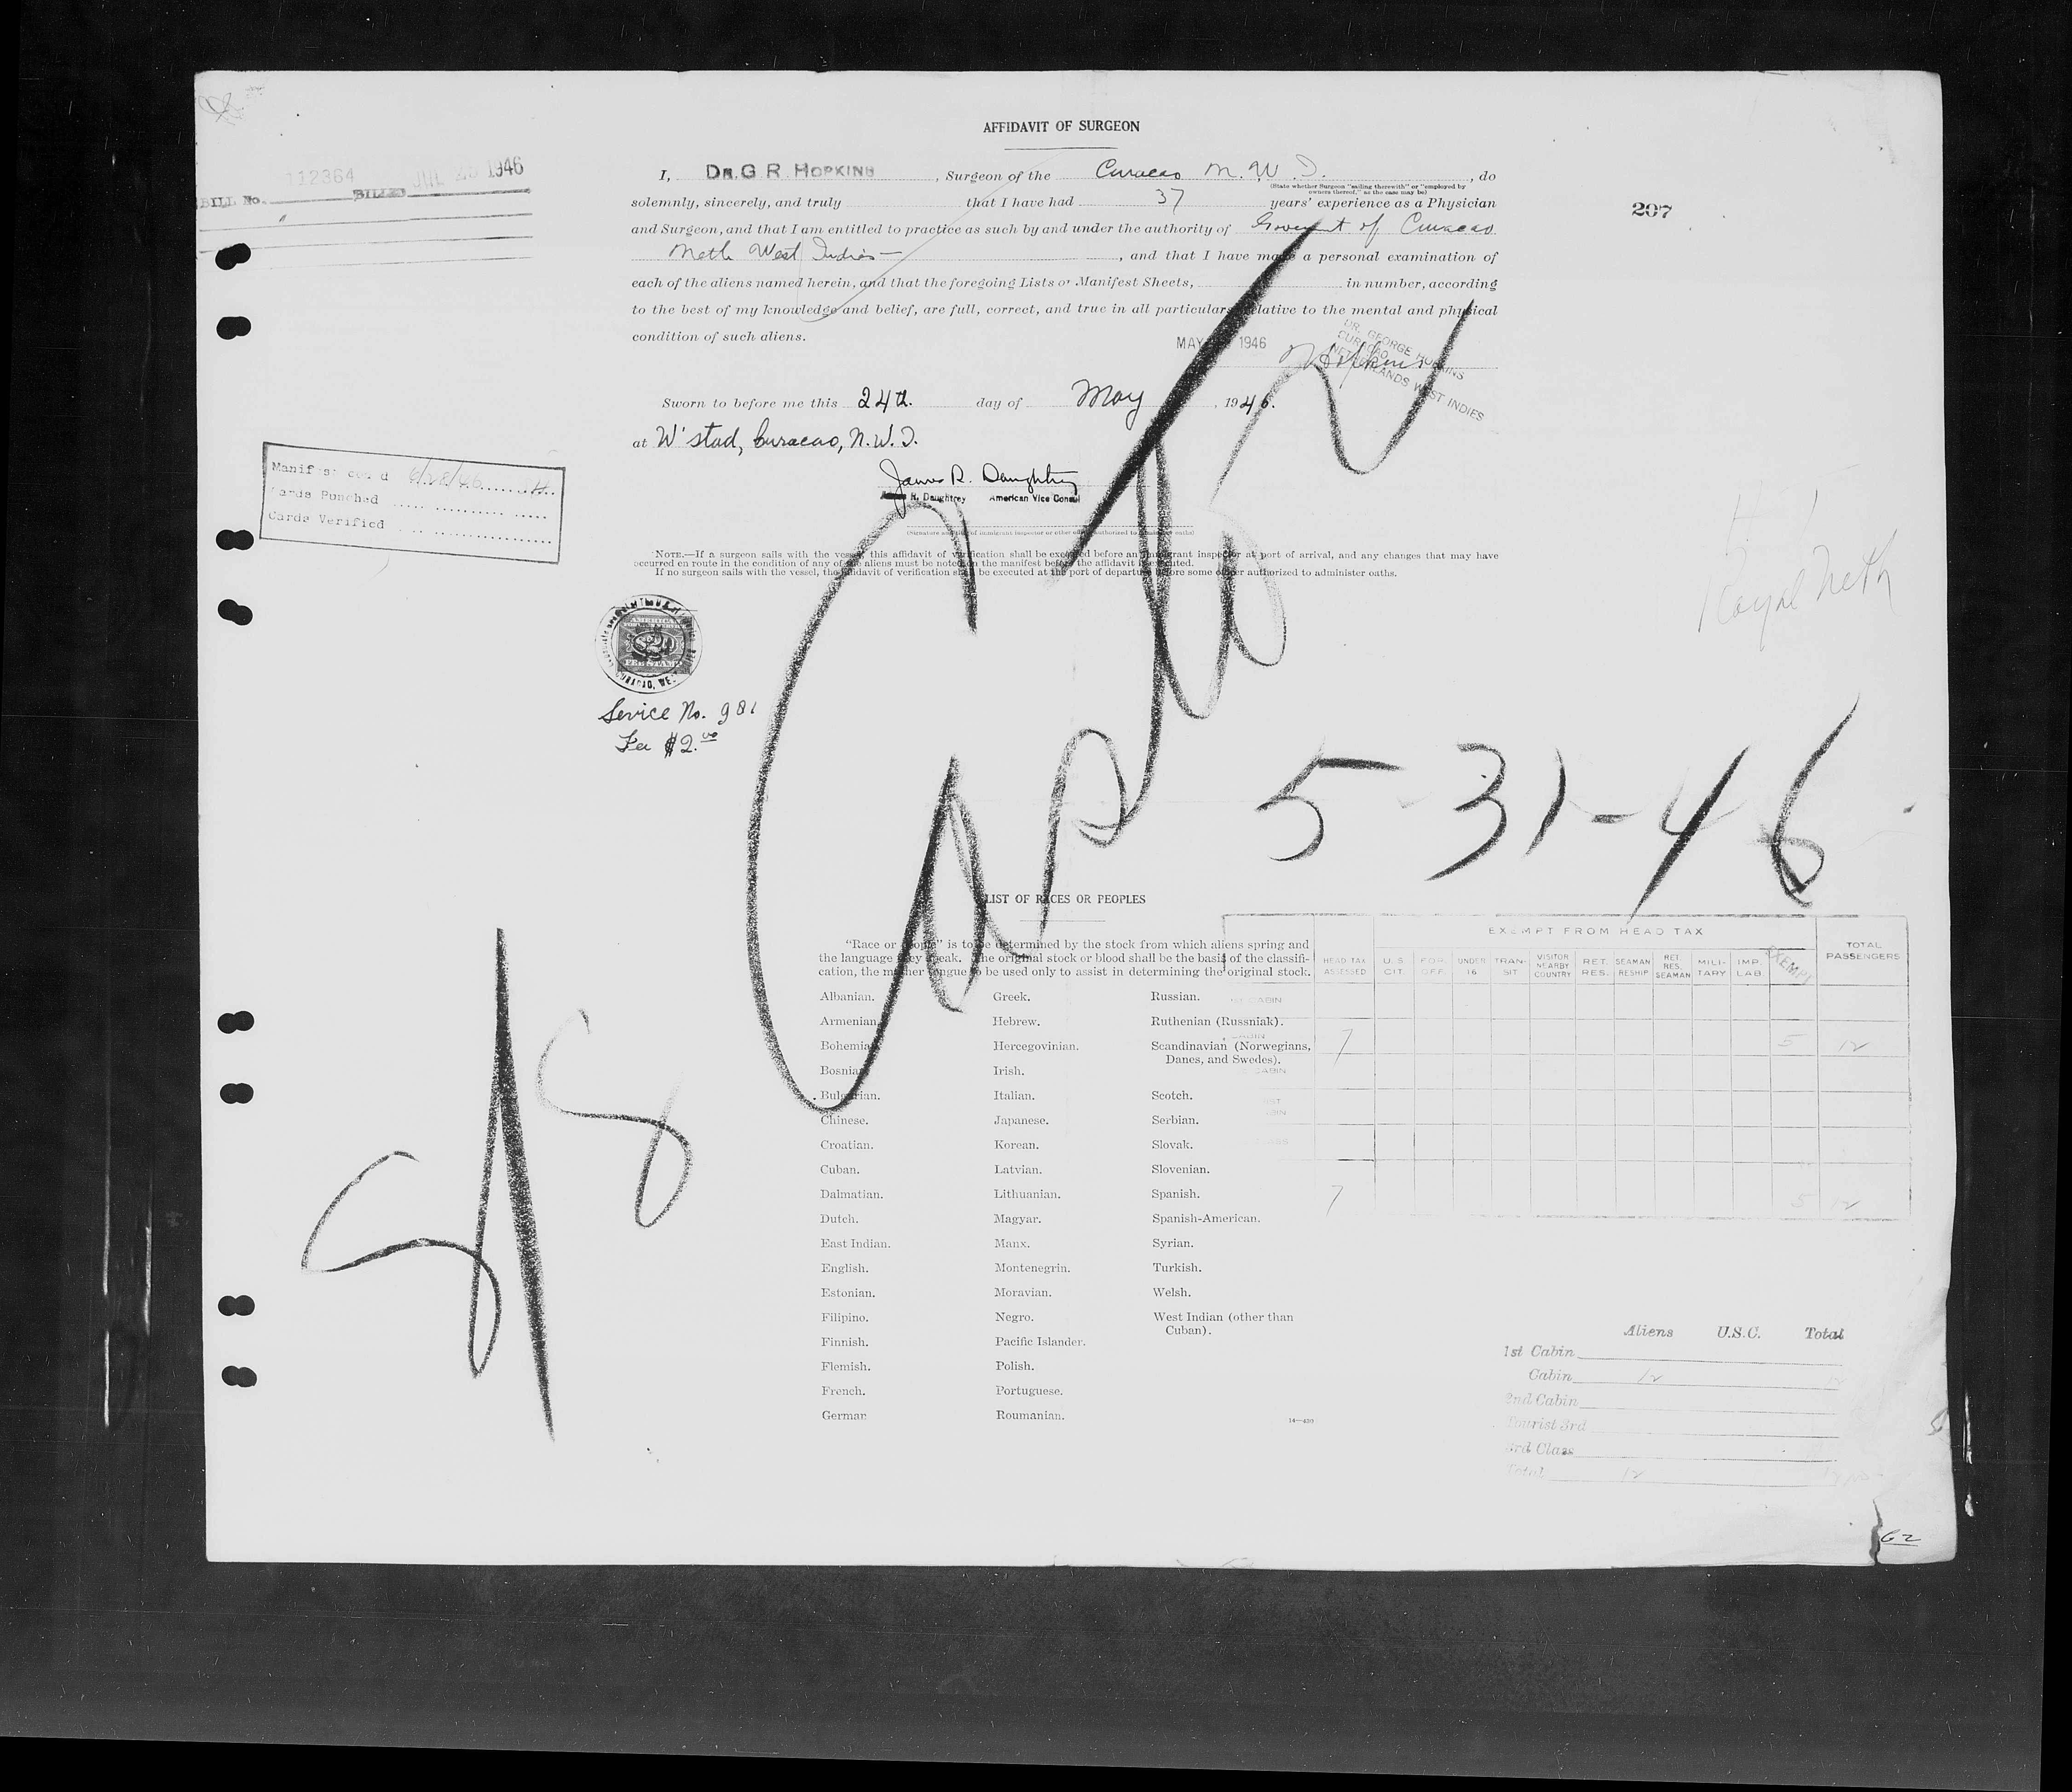 AFFIDAVIT OF SURGEON
I, DR. G R HOPKINS, Surgeon of the Curacao N.W.I., do
(State whether Surgeon "sailing therewith" or "employed by
owners thereof," as the case may be)
solemnly, sincerely, and truly that I have had 37 years' experience as a Physician
and Surgeon, and that I am entitled to practice as such by and under the authority of Goverment of Curacao
Neth West Indies —, and that I have made a personal examination of
each of the aliens named herein, and that the foregoing Lists or Manifest Sheets, in number, according
to the best of my knowledge and belief, are full, correct, and true in all particulars relative to the mental and physical
condition of such aliens.
112364 JUL 1946
BILL No. BILLED
207
MAY 1946
DR. GEORGE HOPKINS
CURAÇAO
NETHERLANDS WEST INDIES
Hopkins
Sworn to before me this 24th. day of May, 1946.
at W'stad, Curacao, N.W.I.
James R. Daughtrey
R. Daughtrey American Vice Consul
(Signature of immigrant inspector or other officer authorized to administer oaths)
Manifest cod d 6/28/46
Cards Punched
Cards Verified
NOTE.—If a surgeon sails with the vessel, this affidavit of verification shall be executed before an immigrant inspector at port of arrival, and any changes that may have
occurred en route in the condition of any of the aliens must be noted on the manifest before the affidavit is executed.
If no surgeon sails with the vessel, the affidavit of verification shall be executed at the port of departure before some officer authorized to administer oaths.
AMERICAN
$2
FEE STAMP
CURACAO, WE
Service No. 981
Fee $2.00
Royal Neth
S/S Castor
5-31-46
LIST OF RACES OR PEOPLES
"Race or people" is to be determined by the stock from which aliens spring and
the language they speak. The original stock or blood shall be the basis of the classifi-
cation, the mother tongue to be used only to assist in determining the original stock.
Albanian. Greek. Russian.
Armenian. Hebrew. Ruthenian (Russniak).
Bohemian. Hercegovinian. Scandinavian (Norwegians,
Danes, and Swedes).
Bosnian. Irish.
Bulgarian. Italian. Scotch.
Chinese. Japanese. Serbian.
Croatian. Korean. Slovak.
Cuban. Latvian. Slovenian.
Dalmatian. Lithuanian. Spanish.
Dutch. Magyar. Spanish-American.
East Indian. Manx. Syrian.
English. Montenegrin. Turkish.
Estonian. Moravian. Welsh.
Filipino. Negro. West Indian (other than
Cuban).
Finnish. Pacific Islander.
Flemish. Polish.
French. Portuguese.
German Roumanian.
14—430
EXEMPT FROM HEAD TAX
HEAD TAX ASSESSED
U.S. CIT.
FOR OFF.
UNDER 16
TRAN-SIT
VISITOR NEARBY COUNTRY
RET. RES.
SEAMAN RESHIP
RET. RES. SEAMAN
MILI-TARY
IMP. LAB
EXEMPT
TOTAL PASSENGERS
CABIN
7 5 12
CABIN
7 5 12
Aliens U.S.C. Total
1st Cabin
Cabin 12 12
2nd Cabin
Tourist 3rd
3rd Class
Total 12
62